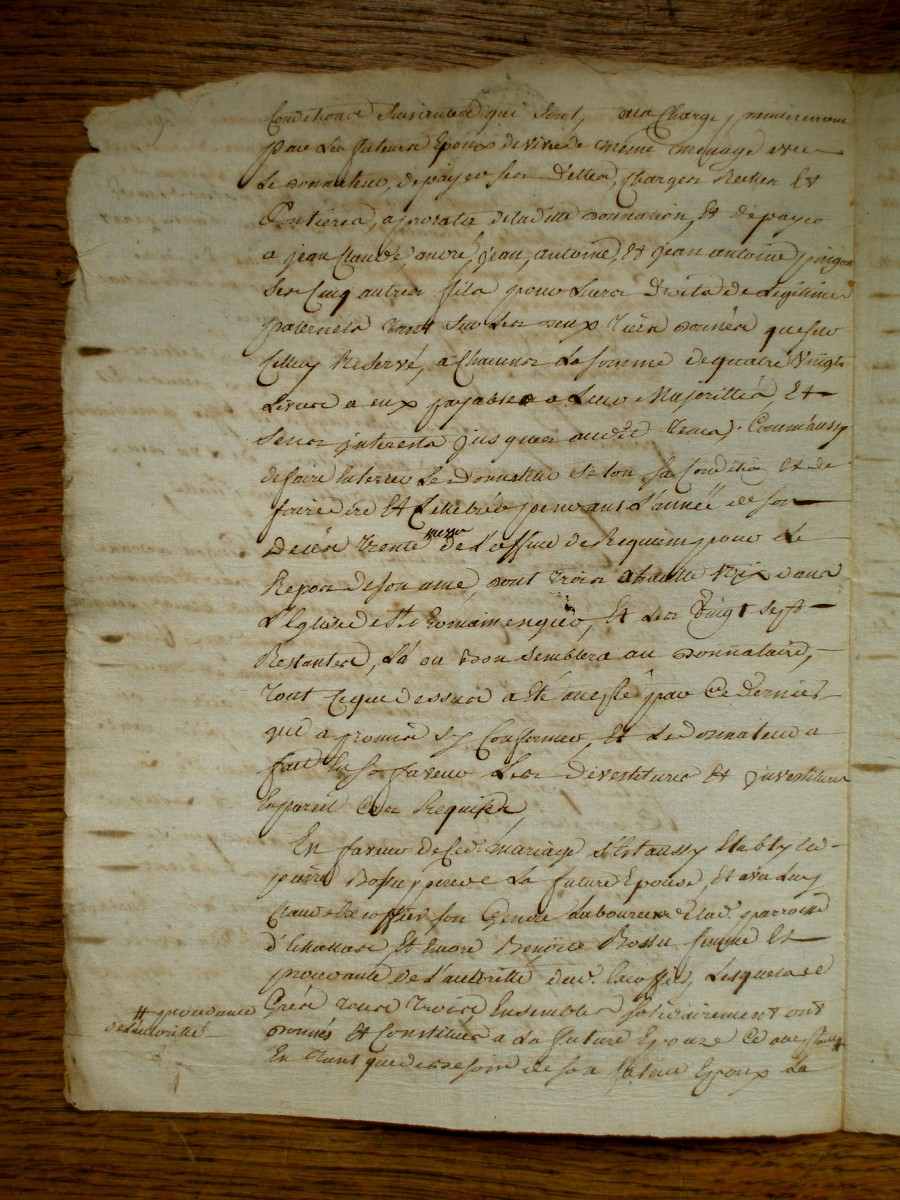 Conditions suivantes qui sont, a la Charge,
par les futurs Epoux de vivre de même menage avec
Le donnateur, de payer ses dettes, charges Reelles Et
fontieres, a prorata de ladite donnation, Et de payer
a jean Claude, andré, jean, antoine, Et jean antoine
ses Cinq autres fils pour leurs droits de Legitime
paternels tant sur les deux tiers donnés que sur
Celluy Reservé, a Chaunne la somme de quatre Vingts
Livres a eux payables a leur Majorittés Et
sens interests jusques audit tems, Comm'aussy
de faire Enterrer Le Donnateur selon sa Condition et de
faire dire Et Cellebrer pendant L'année de son
Decés trente messes de L'office de Requiem pour Le
Repos de son ame, dont trois a haulte voix dans
L'Eglise de St Romain Et Les Vingt sept
Restantes, Là ou bon semblera au donnataire,
Tout Ceque dessus a Eté accepté par Ce dernier
qui a promis s'y Conformer, Et Le donnateur a
fait En sa faveur Les Devestitures Et investitures
En pareil Cas Requises,
En faveur de Ced. mariage s'Est aussy Etably led.
pierre Bossu pere de La future Epouse, Et avec luy
Claude son Gendre Laboureur Et de lad. parroisse
d' Et Encore Benoite Bossu femme Et
procedante de L'authorité dud. Lesquels de
Grés tous trois Ensembles solidairement ont
donnés Et Constitués a La future Epouze Ce acceptante #
En tant que de besoin de son futur Epoux La
# procedante
de Lautorité